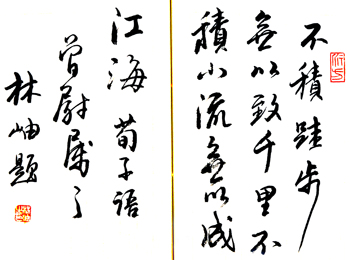 不積跬步
無以致千里不
積小流無以成
江海荀子語
曾尉属之
林岫題